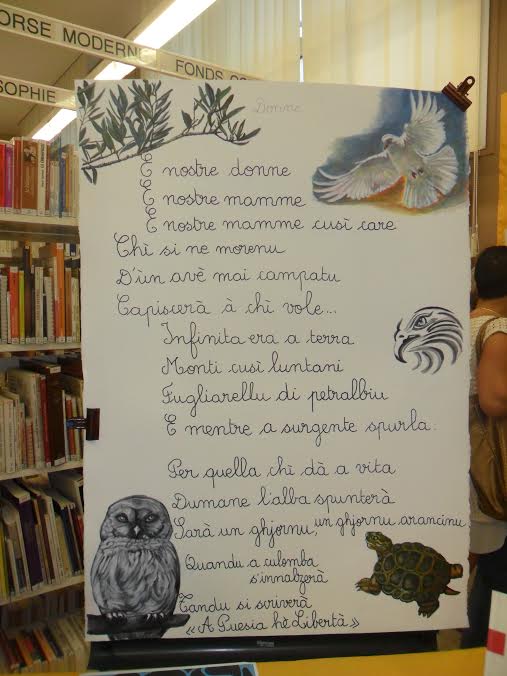 ORSE MODERNE
FONDS
SOPHIE
Donne
E nostre donne
E nostre mamme
E nostre mamme cusì care
Chì si ne morenu
D'ùn avè mai campatu
Capiscerà à chì vole...
Infinita era a terra
Monti cusì luntani
Fugliarellu di petralbiu
E mentre a surgente spurla:
Per quella chì dà a vita
Dumane l'alba spunterà
Sarà un ghjornu, un ghjornu arancinu.
Quandu a culomba
s'innalzerà
Tandu si scriverà
« A Puesia hè Libertà »